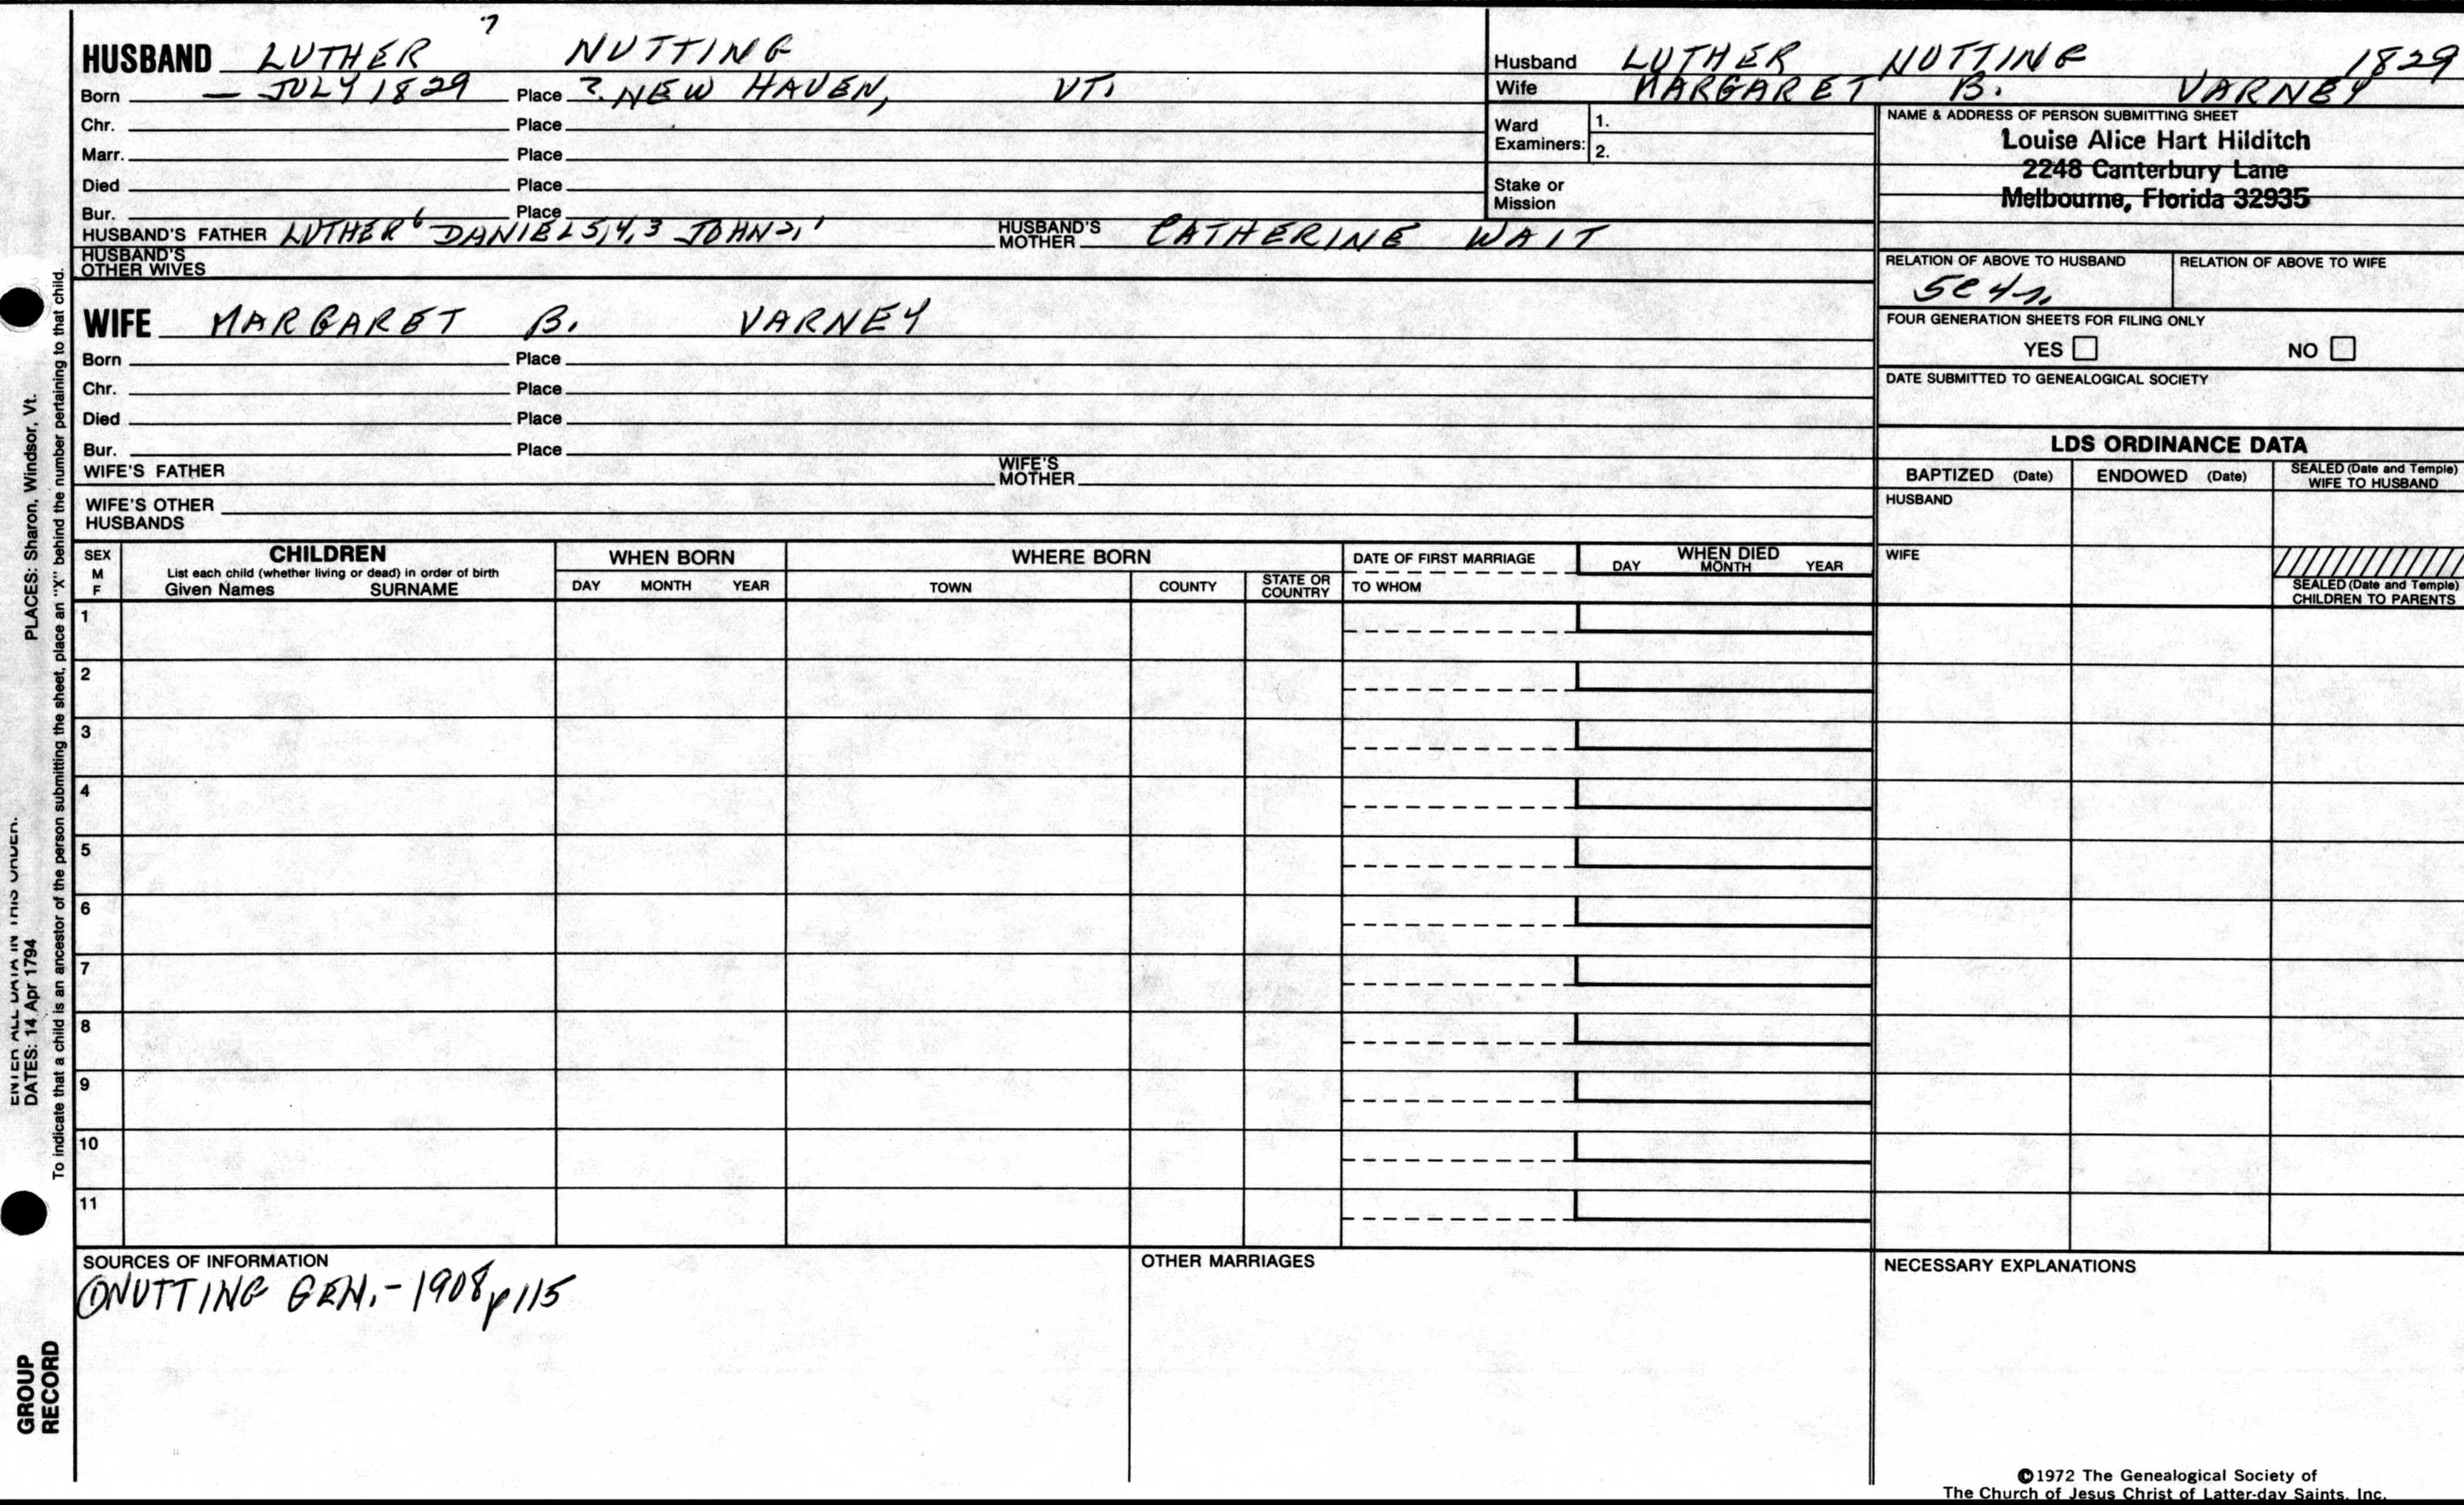 7
HUSBAND LUTHER NUTTING
Born — JULY 1829 Place ? NEW HAVEN, VT.
Chr. Place
Marr. Place
Died Place
Bur. Place
HUSBAND'S FATHER LUTHER 6 DANIEL 5,4,3 JOHN 2,1 HUSBAND'S MOTHER CATHERINE WAIT
HUSBAND'S OTHER WIVES
WIFE MARGARET B. VARNEY
Born Place
Chr. Place
Died Place
Bur. Place
WIFE'S FATHER WIFE'S MOTHER
WIFE'S OTHER HUSBANDS
Husband LUTHER NUTTING 1829
Wife MARGARET B. VARNEY
Ward Examiners: 1.
2.
Stake or Mission
NAME & ADDRESS OF PERSON SUBMITTING SHEET
Louise Alice Hart Hilditch
2248 Canterbury Lane
Melbourne, Florida 32935
RELATION OF ABOVE TO HUSBAND RELATION OF ABOVE TO WIFE
FOUR GENERATION SHEETS FOR FILING ONLY
YES NO
DATE SUBMITTED TO GENEALOGICAL SOCIETY
LDS ORDINANCE DATA
BAPTIZED (Date) ENDOWED (Date) SEALED (Date and Temple) WIFE TO HUSBAND
HUSBAND
WIFE
SEALED (Date and Temple) CHILDREN TO PARENTS
SEX M F
CHILDREN
List each child (whether living or dead) in order of birth
Given Names SURNAME
WHEN BORN
DAY MONTH YEAR
WHERE BORN
TOWN COUNTY STATE OR COUNTRY
DATE OF FIRST MARRIAGE
TO WHOM
WHEN DIED
DAY MONTH YEAR
1
2
3
4
5
6
7
8
9
10
11
SOURCES OF INFORMATION
① NUTTING GEN. - 1908 p 115
OTHER MARRIAGES
NECESSARY EXPLANATIONS
©1972 The Genealogical Society of
The Church of Jesus Christ of Latter-day Saints, Inc.
ENTER ALL DATA IN THIS ORDER.
DATES: 14 Apr 1794 PLACES: Sharon, Windsor, Vt.
To indicate that a child is an ancestor of the person submitting the sheet, place an "X" behind the number pertaining to that child.
GROUP
RECORD